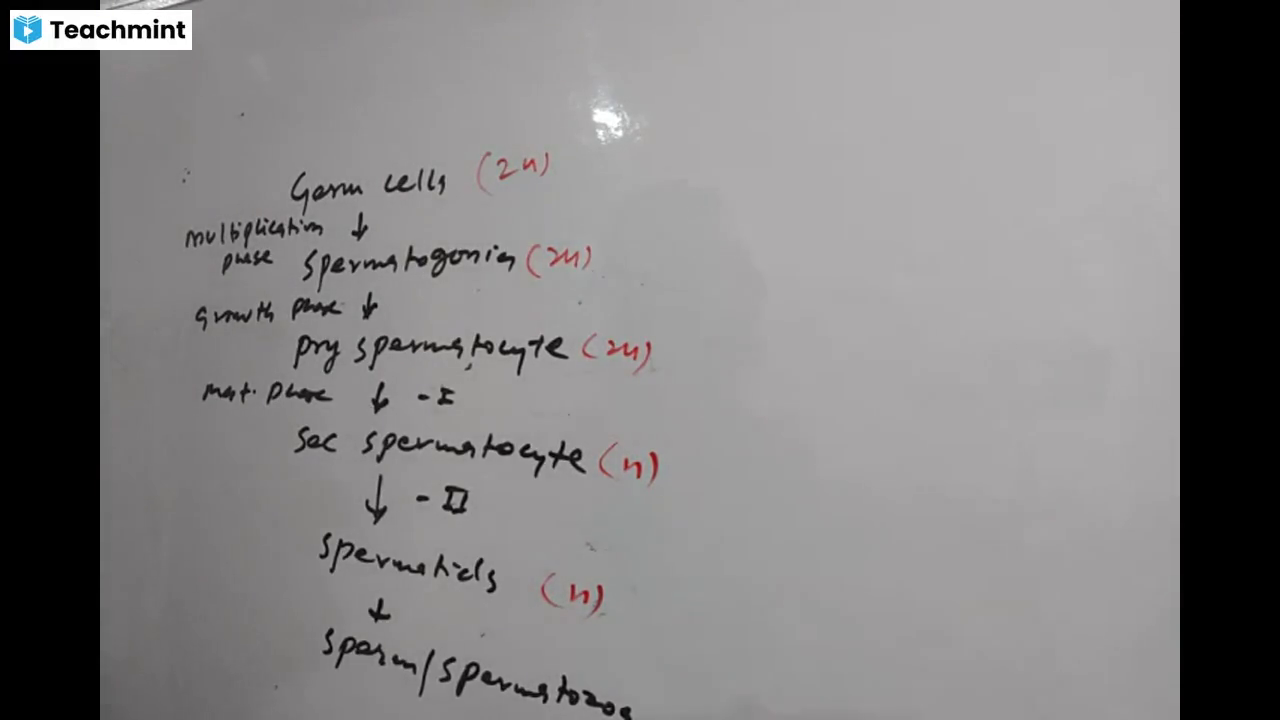 Teachmint
Germ cells (2n)
multiplication
phase
spermatogonia (2n)
Growth phase
pry spermatocyte (2n)
mat. phase - I
sec spermatocyte (n)
- II
spermatids (n)
sperm/spermatozoa